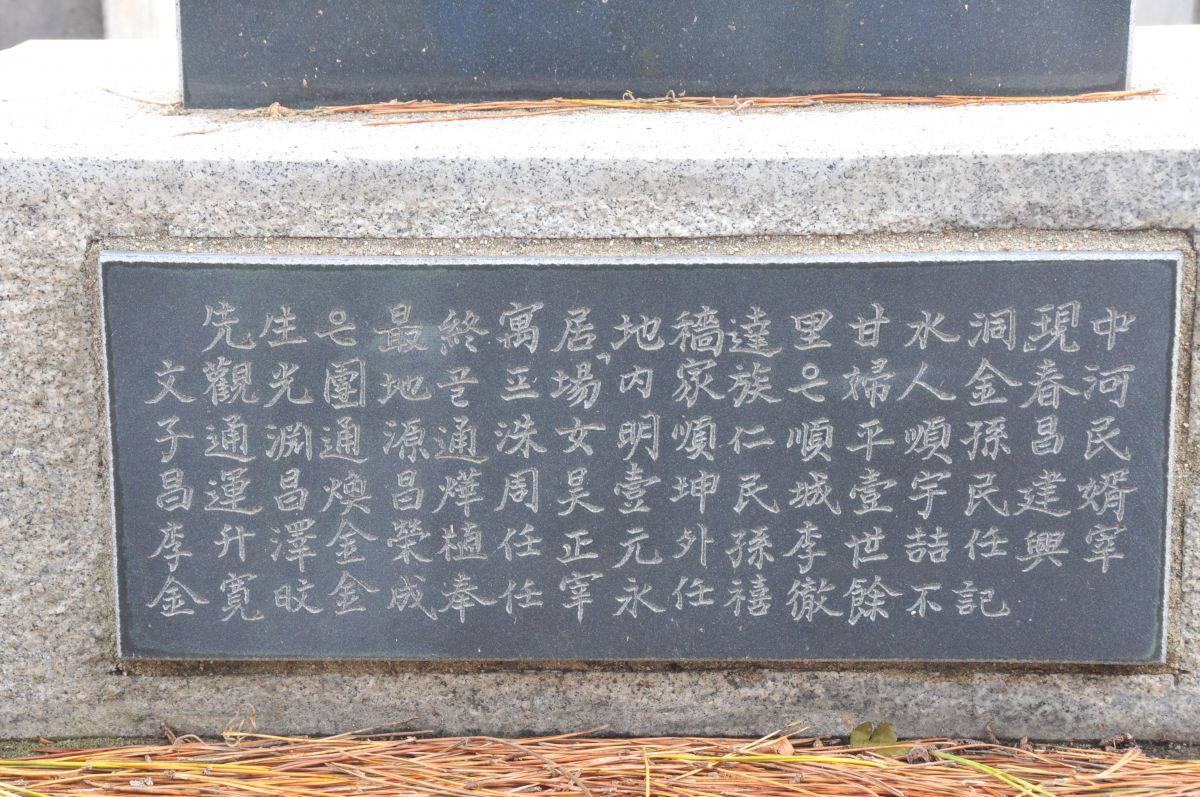 先生은最終寓居地穡達里甘水洞現中
文觀光團地골프場內家族은婦人金春河
子通淵通源通洙女明順仁順平順孫昌民
昌運昌煥昌燁周昊壹坤民城壹宇民建婿
李升澤金榮植任正元外孫李世喆任興宰
金寬旼金成奉任宰永任禧徹餘不記